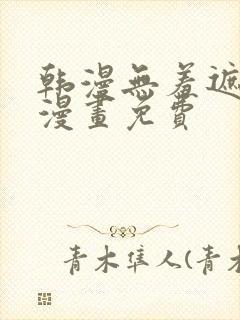 韩漫無羞遮
漫畫免費
青木隼人(青木